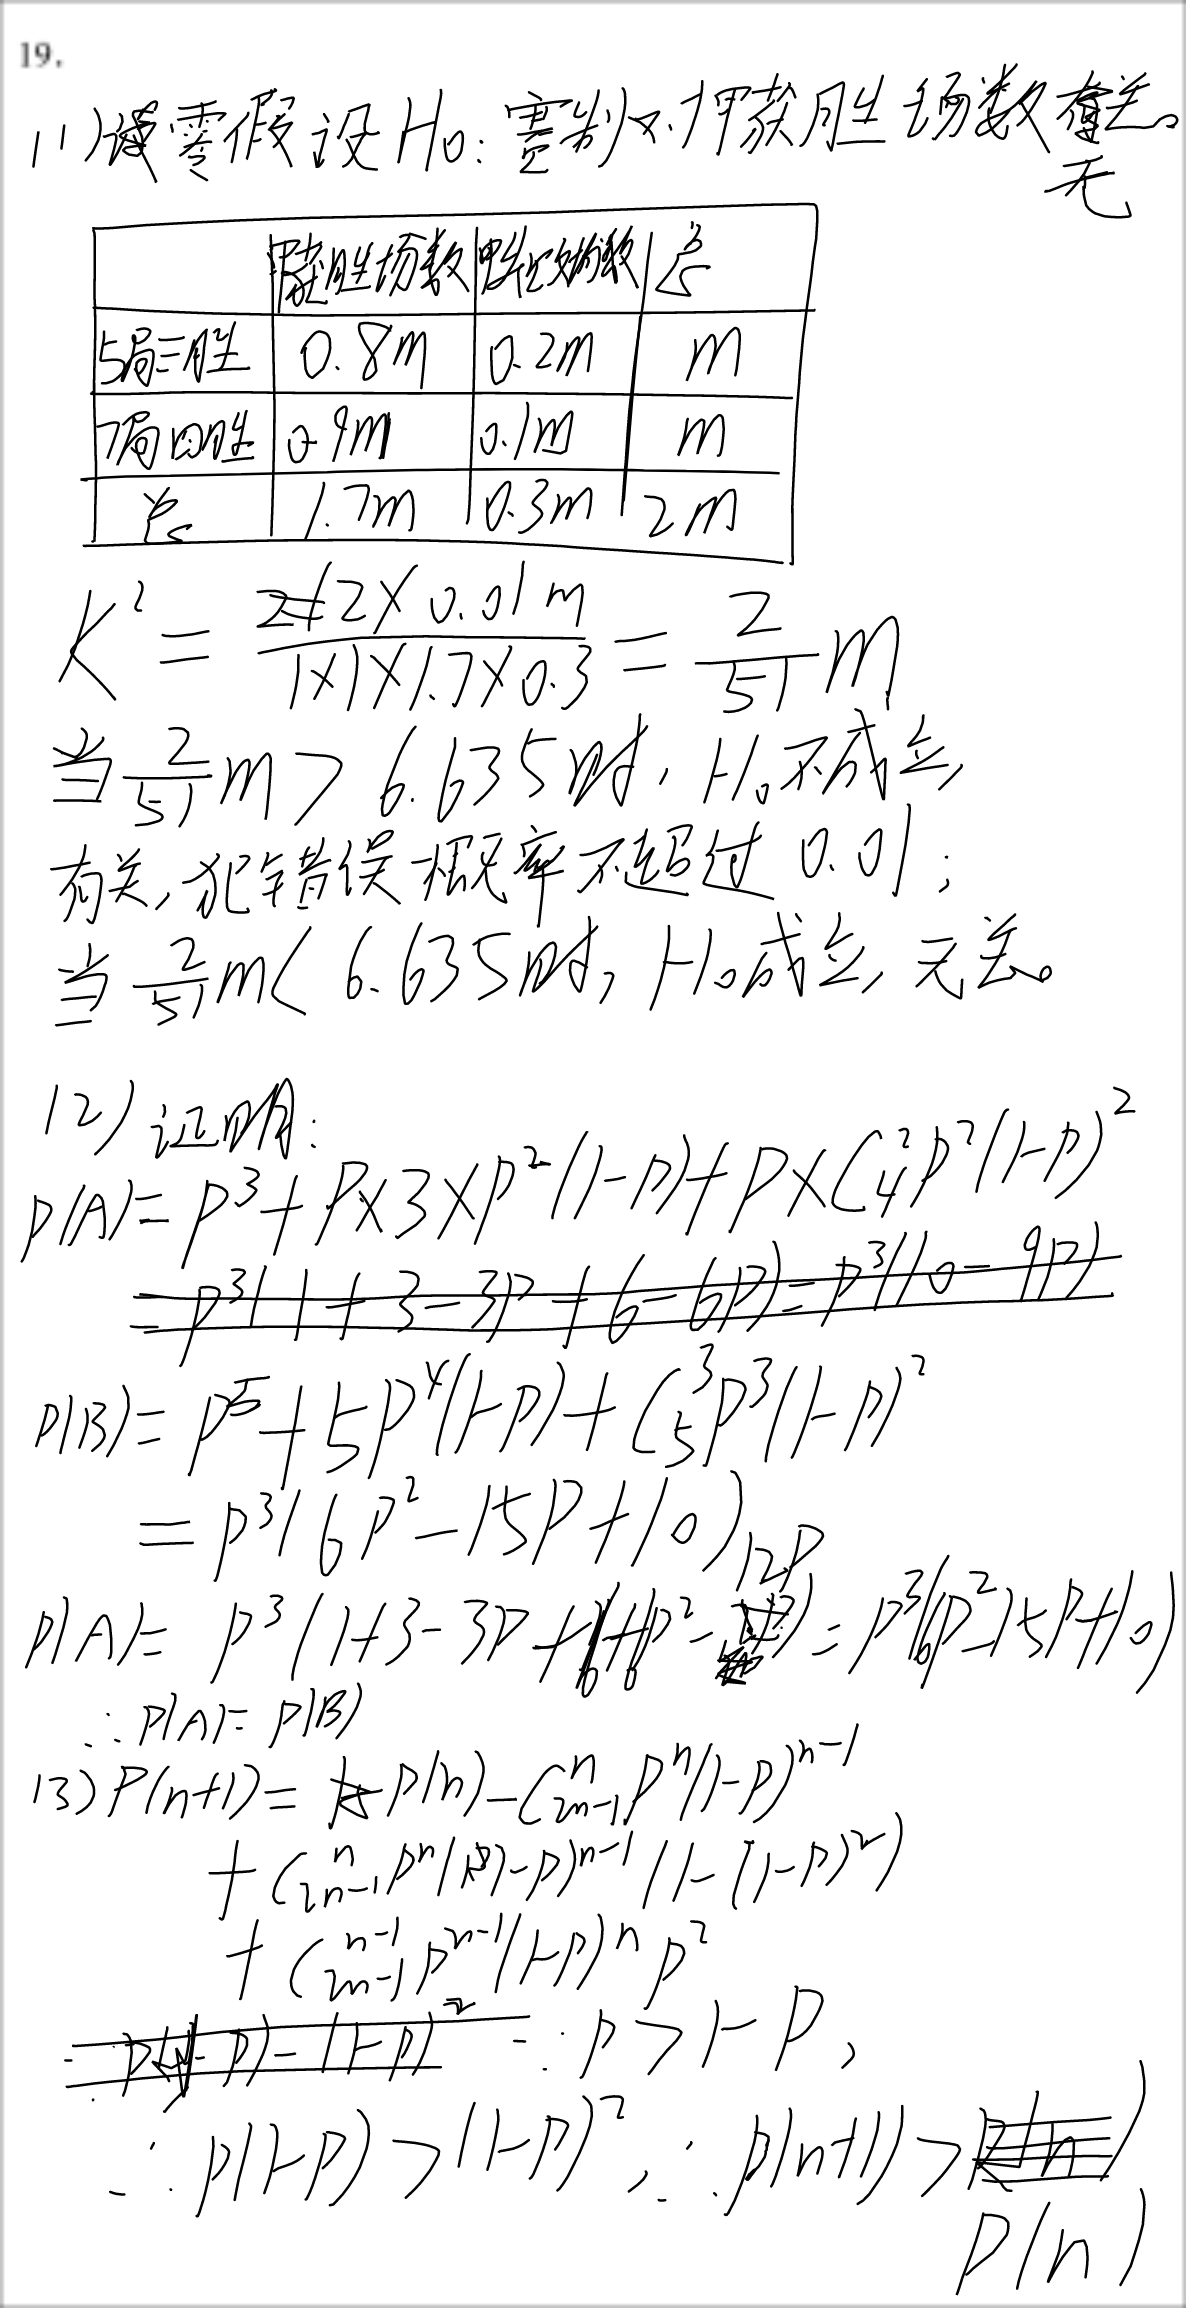 19.
(1) 零假设H₀: 赛制对甲获胜场数无关。
甲获胜场数 甲失败场数 总
5局三胜 0.8m 0.2m m
7局四胜 0.9m 0.1m m
总 1.7m 0.3m 2m
K² = 2×0.01m / 1×1×1.7×0.3 = 2/51 m
当 2/51 m > 6.635时, H₀不成立,
有关, 犯错误概率不超过 0.01;
当 2/51 m < 6.635时, H₀成立, 无关。
(2) 证明:
P(A)= P³+P×3×P²(1-P)+P×C₄²P²(1-P)²
=P³(1+3-3P+6-6P)=P³(10-9P)
P(B)= P⁵+5P⁴(1-P)+C₅³P³(1-P)²
=P³(6P²-15P+10)
P(A)= P³(1+3-3P+6+6P²-12P)=P³(6P²-15P+10)
∴P(A)=P(B)
(3) P(n+1)= P(n)-C₂ₙ₋₁ⁿPⁿ(1-P)ⁿ⁻¹
+C₂ₙ₋₁ⁿPⁿ(1-P)ⁿ⁻¹(1-(1-P)²)
+C₂ₙ₋₁ⁿ⁻¹Pⁿ⁻¹(1-P)ⁿP²
∵P>1-P,
∴P(1-P)>(1-P)², ∴P(n+1)>
P(n)